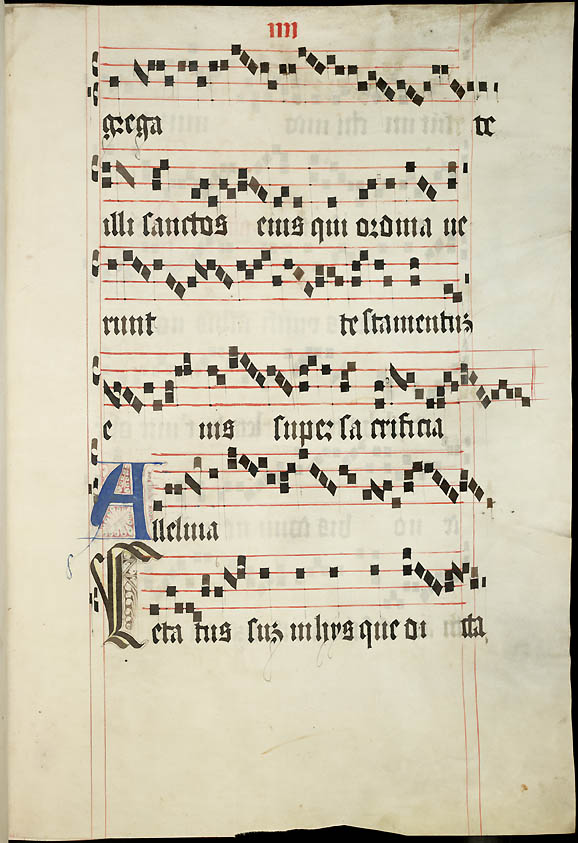 IIII
grega te
illi sanctos eius qui ordina ue
runt testamentuz
e ius super sa crificia
Alleluia
Leta tus suz in hys que di cta